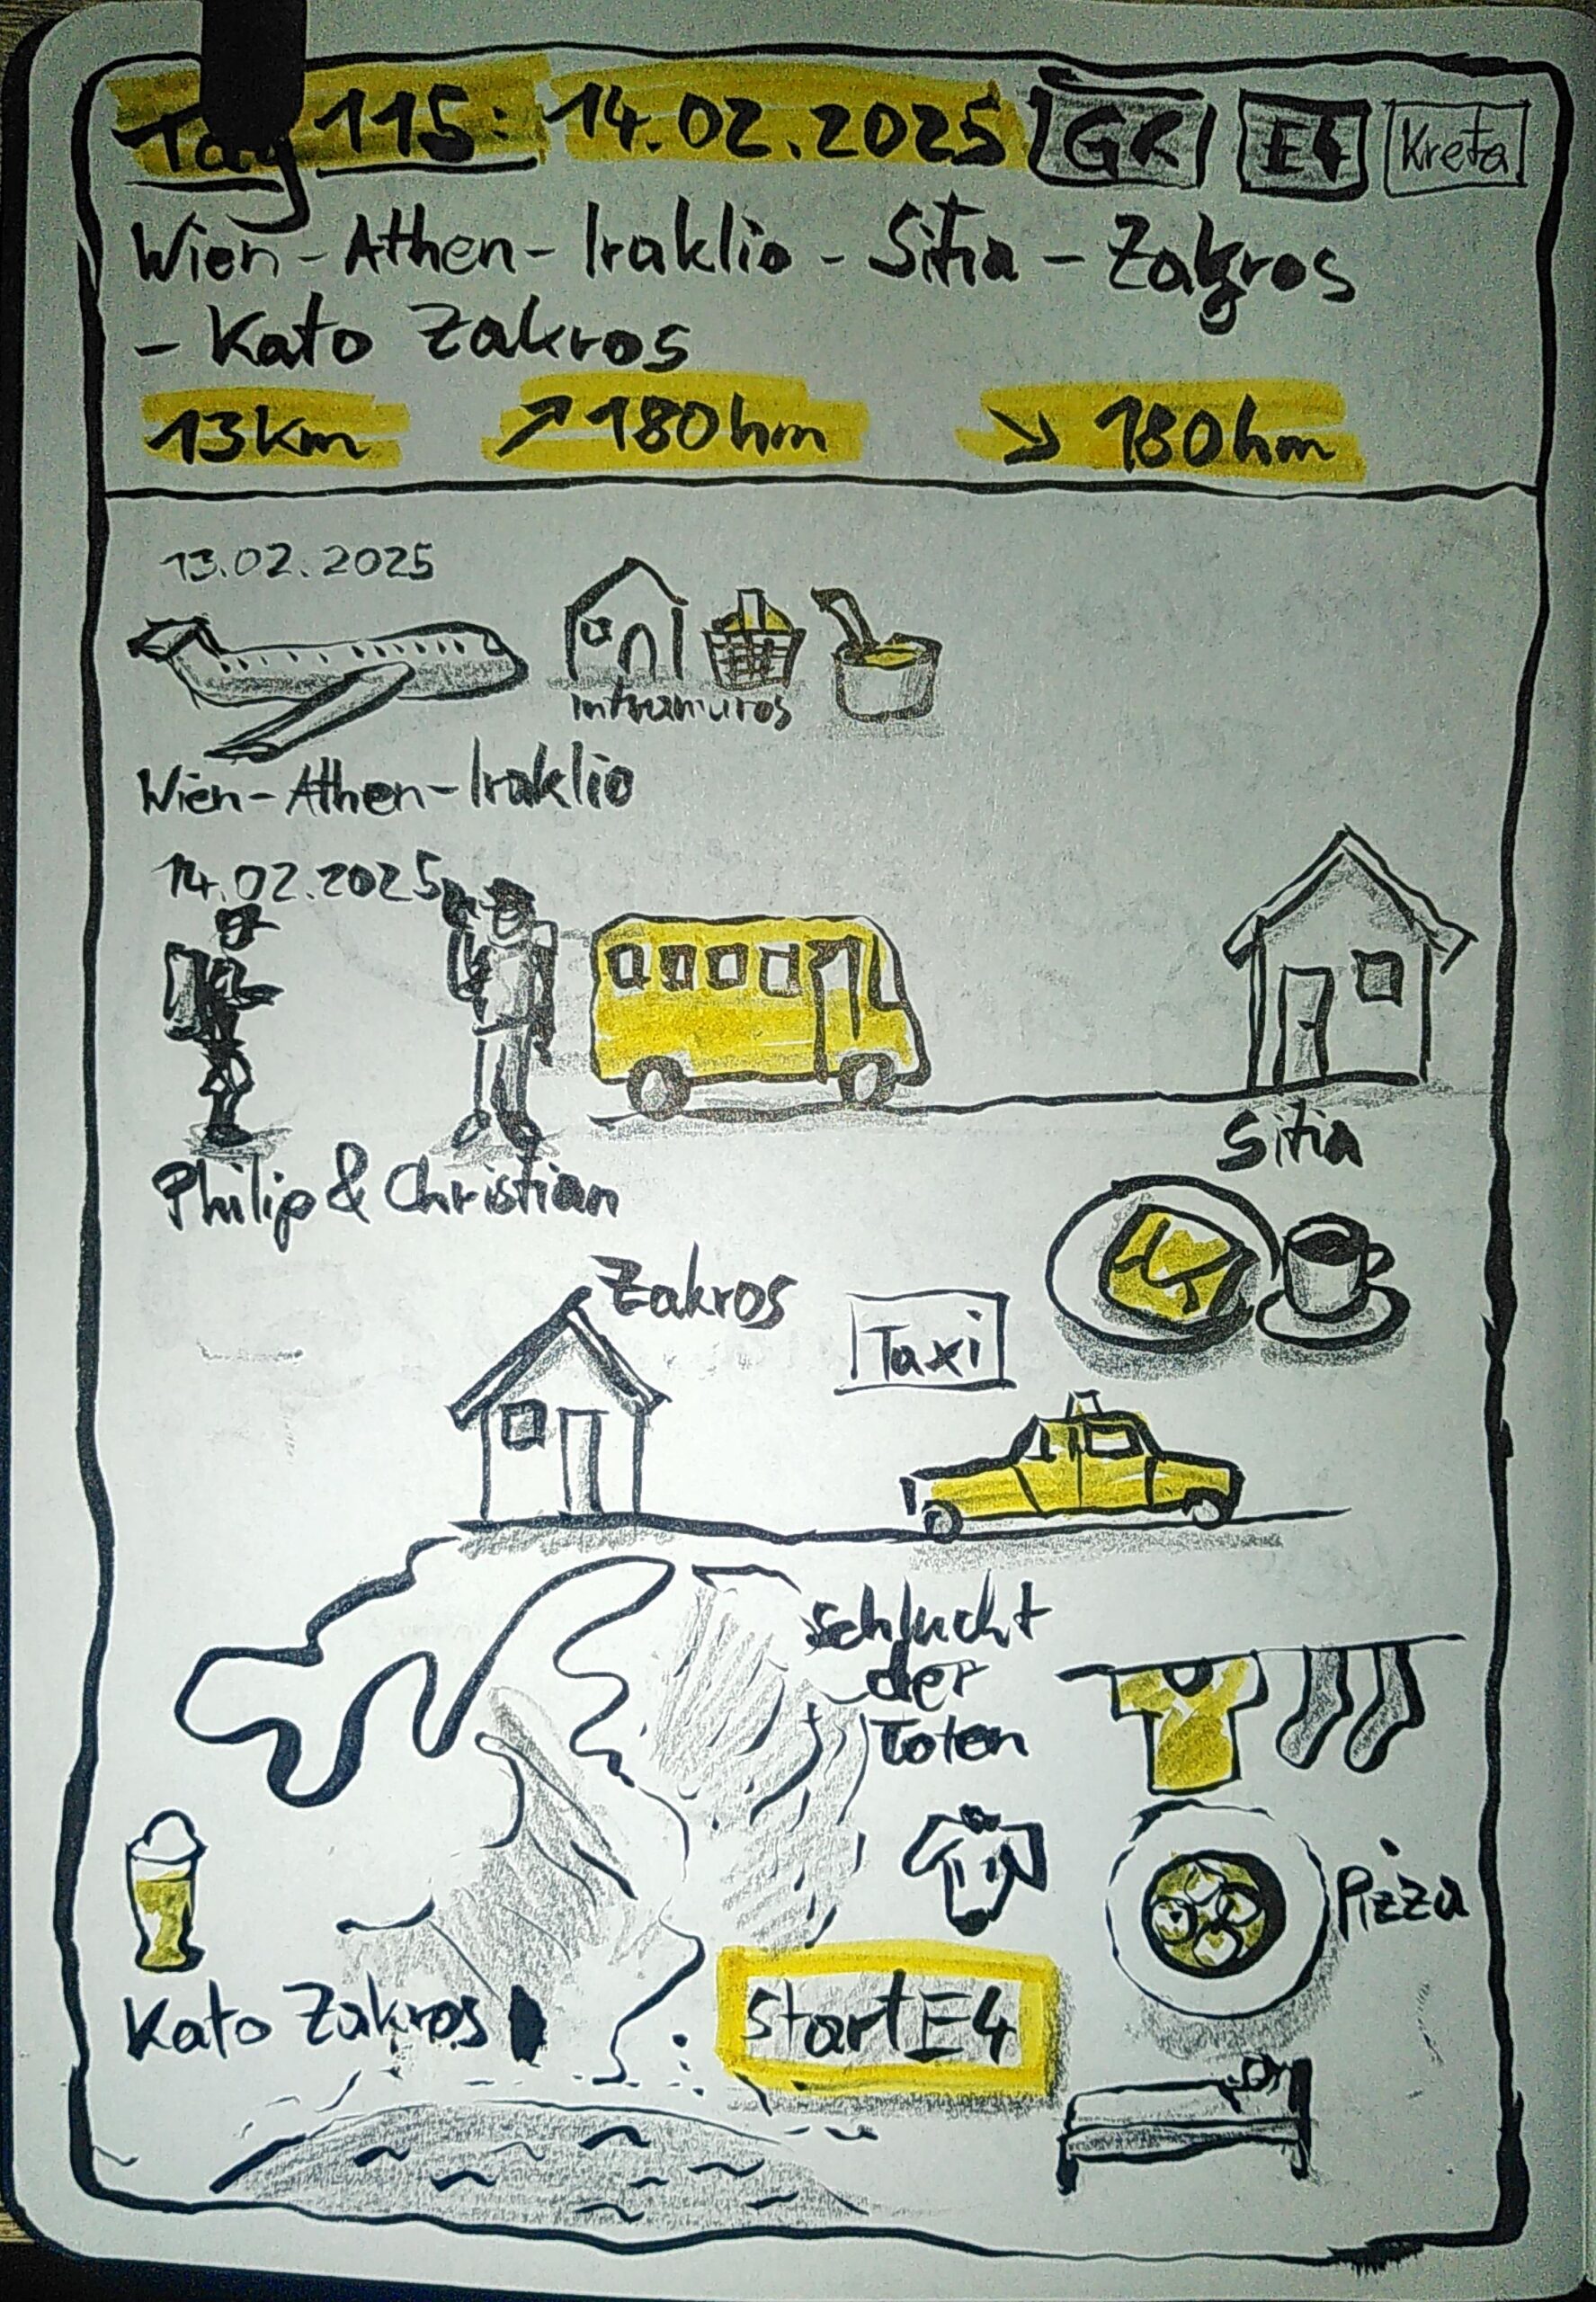 Tag 115: 14.02.2025 GR E4 Kreta
Wien - Athen - Iraklio - Sitia - Zakros
- Kato Zakros
13km ↗ 180hm ↘ 180hm
13.02.2025
intramuros
Wien - Athen - Iraklio
14.02.2025
Philip & Christian
Sitia
Zakros
Taxi
Schlucht
der
Toten
Pizza
Kato Zakros
Start E4